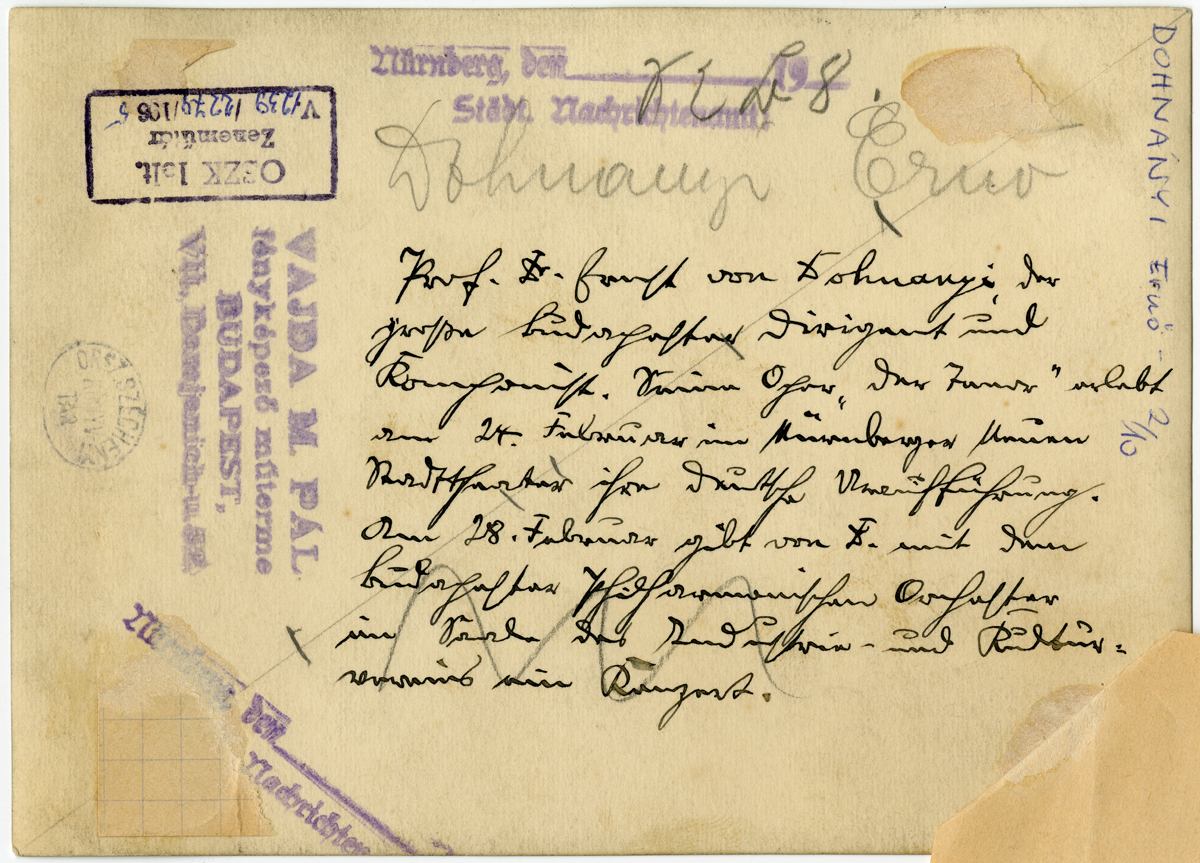 Nürnberg, den 19
Städt. Nachrichtenamt
Dohnanyi Erno
Prof. Dr. Ernst von Dohnanyi, der
große Budapester Dirigent und
Komponist. Seine Oper „Der Tenor" erlebt
am 24. Februar im Nürnberger Neuen
Stadttheater ihre deutsche Uraufführung.
Am 28. Februar gibt von D. mit dem
Budapester Philharmonischen Orchester
im Saale des Industrie- und Kultur-
vereins ein Konzert.
DOHNÁNYI Ernő - 2/10
OSZK Ielt.
Zeneműtár
V 1239/2279/1965
VAJDA M. PÁL
fényképező műterme
BUDAPEST,
VII., Damjanich-u.
Nürnberg, den
Nachrichten